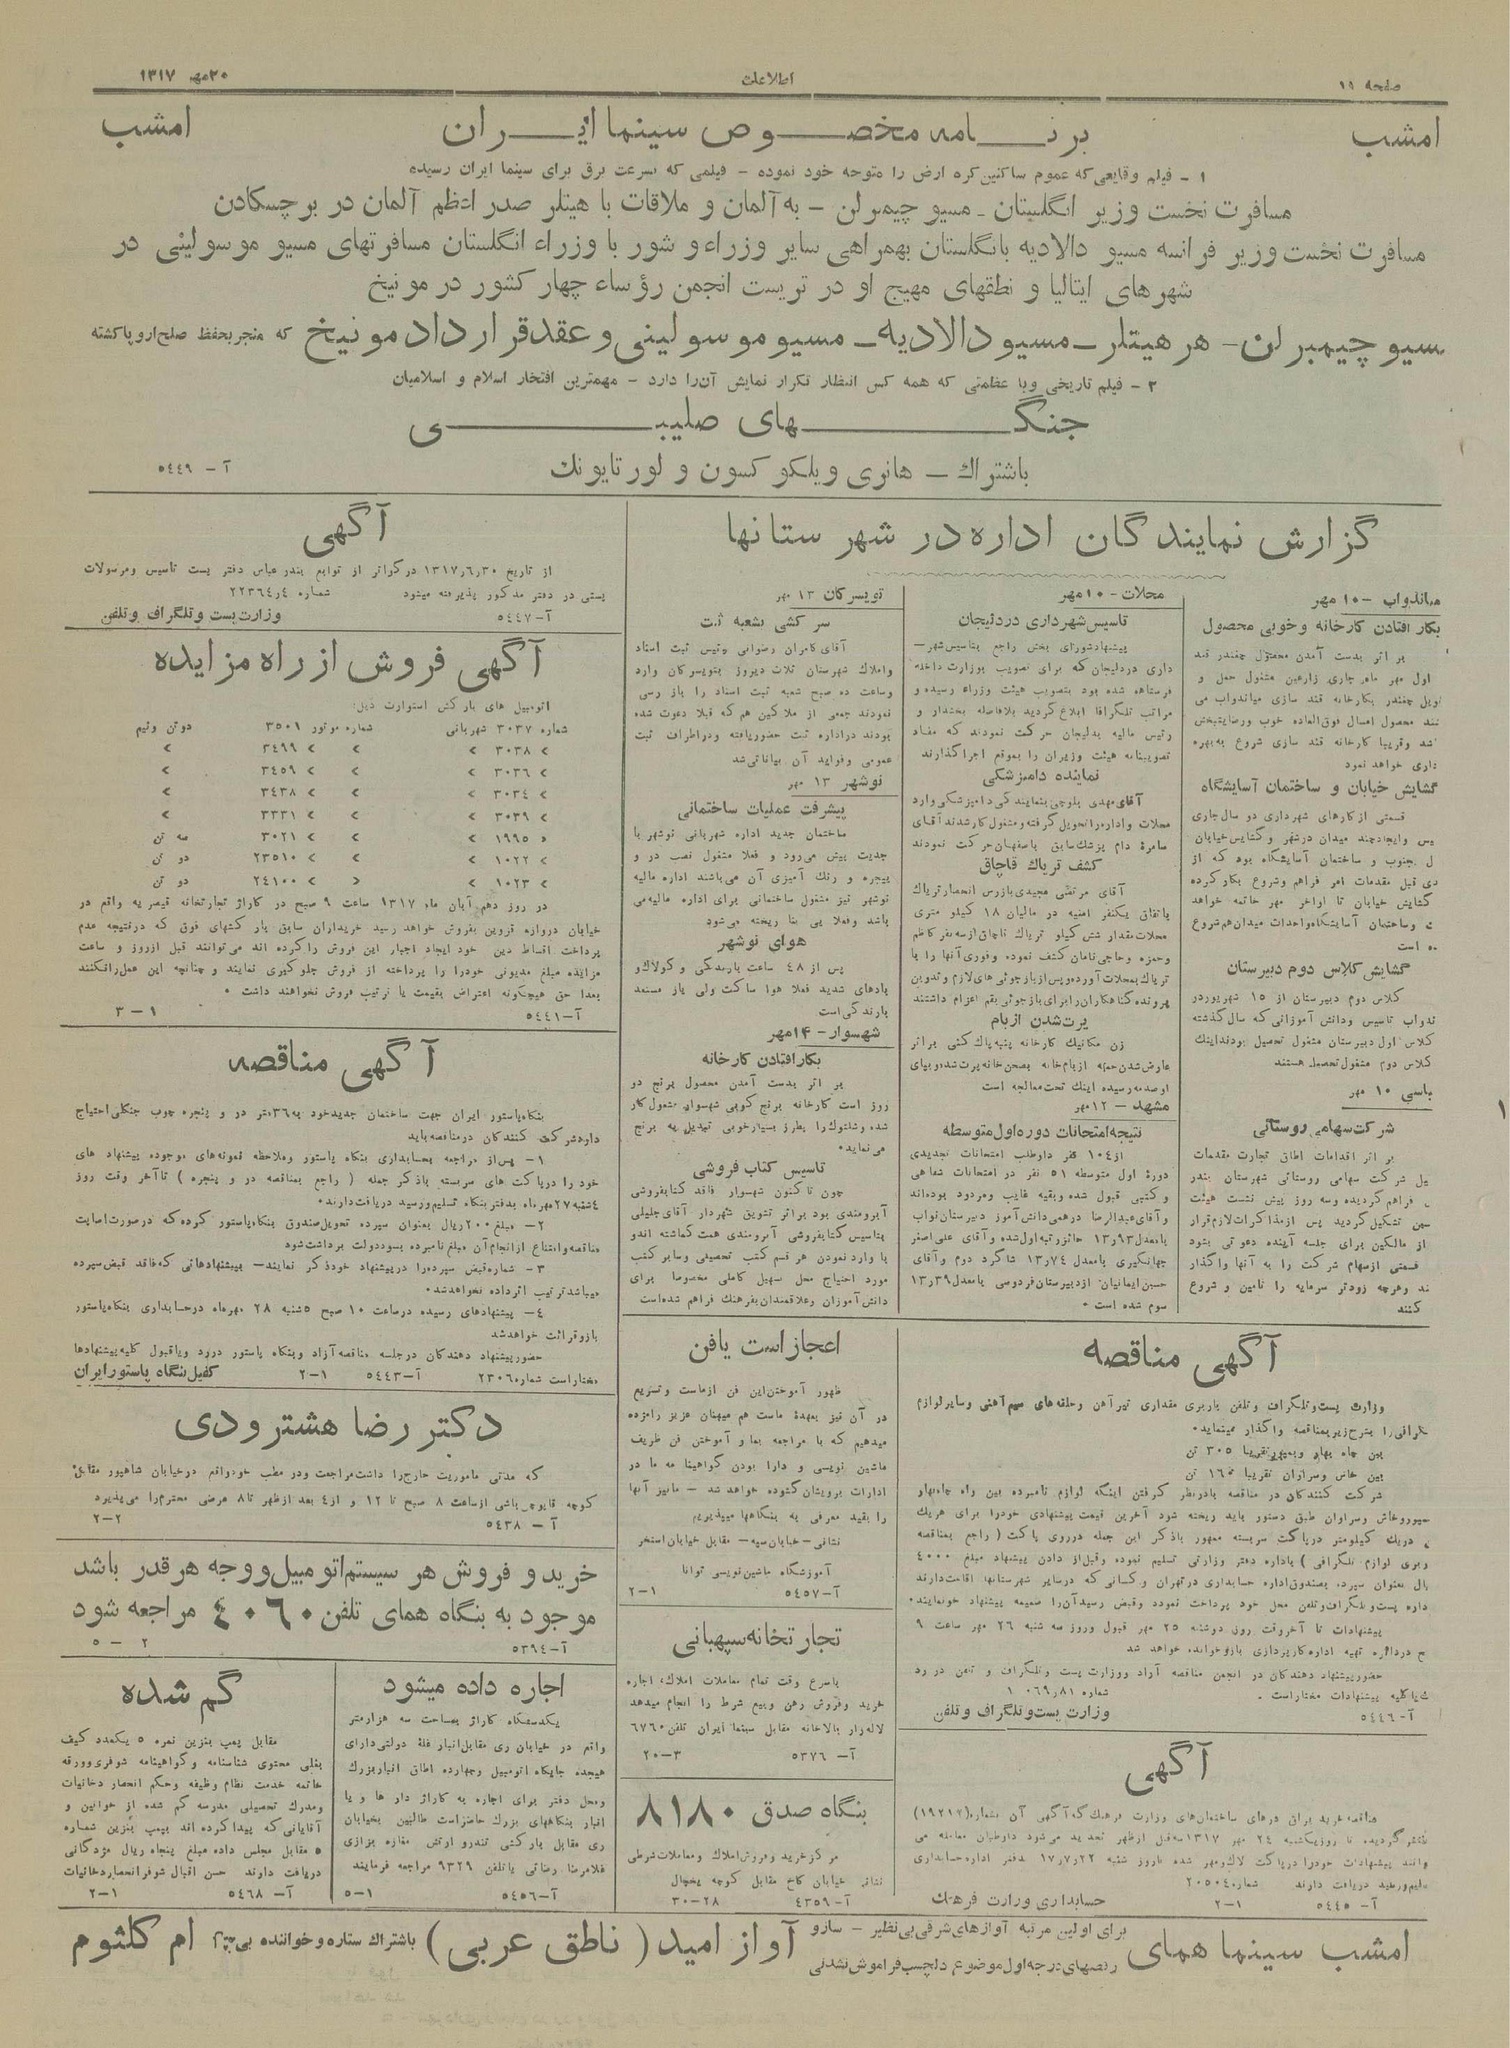 صفحه ۱۱
اطلاعات
۲۰ مهر ۱۳۱۷
امشب
برنامه مخصوص سینما ایران
امشب
۱ - فیلم وقایعی که عموم ساکنین کره ارض را متوجه خود نموده - فیلمی که بسرعت برق برای سینما ایران رسیده
مسافرت نخست وزیر انگلیستان - مسیو چیمبرلن - به آلمان و ملاقات با هیتلر صدر اعظم آلمان در برچسکادن
مسافرت نخست وزیر فرانسه مسیو دالادیه بانگلستان بهمراهی سایر وزراء و شور با وزراء انگلستان مسافرتهای مسیو موسولینی در
شهرهای ایتالیا و نطقهای مهیج او در تریست انجمن رؤساء چهار کشور در مونیخ
سیو چیمبرلن - هر هیتلر - مسیو دالادیه - مسیو موسولینی و عقد قرارداد مونیخ که منجر بحفظ صلح اروپا گشته
۲ - فیلم تاریخی وبا عظمتی که همه کس انتظار تکرار نمایش آن را دارد - مهمترین افتخار اسلام و اسلامیان
جنگهای صلیبی
باشتراك - هانری ویلکوکسون و لورتایونك
آ - ۵٤٤۹
گزارش نمایندگان اداره در شهرستانها
میاندوآب - ۱۰ مهر
بکار افتادن کارخانه و خوبی محصول
بر اثر بدست آمدن محصول چغندر قند
اول مهر ماه جاری زارعین مشغول حمل و
ویل چغندر بکارخانه قند سازی میاندواب می
نند محصول امسال فوق العاده خوب ورضایتبخش
شد وقریبا کارخانه قند سازی شروع به بهره
داری خواهد نمود
گشایش خیابان و ساختمان آسایشگاه
قسمتی از کارهای شهرداری دو سال جاری
یس وایجاد چند میدان درشهر و گشایش خیابان
ل بجنوب و ساختمان آسایشگاه بود که از
دی قبل مقدمات امر فراهم وشروع بکار کرده
گشایش خیابان تا اواخر مهر خاتمه خواهد
ت وساختمان آسایشگاه واحداث میدان هم شروع
ده است
گشایش کلاس دوم دبیرستان
کلاس دوم دبیرستان از ۱۵ شهریور در
ندواب تاسیس ودانش آموزانی که سال گذشته
کلاس اول دبیرستان مشغول تحصیل بودند اینك
کلاس دوم مشغول تحصیل هستند
۱۰ مهر
شرکت سهامی روستائی
بر اثر اقدامات اطاق تجارت مقدمات
یل شرکت سهامی روستائی شهرستان بندر
فراهم گردیده وسه روز پیش نشست هیئت
سن تشکیل گردید پس از مذاکرات لازم قرار
از مالکین برای جلسه آینده دعوتی بشود
قسمتی از سهام شرکت را به آنها واگذار
ند وهرچه زودتر سرمایه را تامین و شروع
کنند
محلات - ۱۰ مهر
تاسیس شهرداری در دلیجان
پیشنهاد شورای بخش راجع بتاسیس شهر-
داری دردلیجان که برای تصویب بوزارت داخله
فرستاده شده بود بتصویب هیئت وزراء رسیده و
مراتب تلگرافا ابلاغ گردید بلافاصله بخشدار و
رئیس مالیه بدلیجان حرکت نمودند که مفاد
تصویبنامه هیئت وزیران را بموقع اجرا گذارند
نماینده دامپزشکی
آقای مهدی بلوچی بنمایندگی دامپزشکی وارد
محلات واداره را تحویل گرفته ومشغول کار شدند آقای
سامره دام پزشك سابق باصفهان حرکت نمودند
کشف تریاك قاچاق
آقای مرتضی مجیدی بازرس انحصار تریاك
باتفاق یکنفر امنیه در مالیان ۱۸ کیلو متری
محلات مقدار شش کیلو تریاك قاچاق از سه نفر کاظم
وحمزه وحاجی نامان کشف نموده وفوری آنها را با
تریاك بمحلات آورده وپس از بازجوئی های لازم وتدوین
پرونده گناهکاران را برای بازجوئی بقم اعزام داشتند
پرت شدن از بام
زن مکانیك کارخانه پنبه پاك کنی براثر
عارض شدن حمله از بام خانه بصحن خانه پرت شده وبپای
او صدمه رسیده اینك تحت معالجه است
مشهد - ۱۲ مهر
نتیجه امتحانات دوره اول متوسطه
از ۱۰٤ نفر داوطلب امتحانات تجدیدی
دورۀ اول متوسطه ۵۱ نفر در امتحانات شفاهی
و کتبی قبول شده وبقیه غایب ومردود بوده اند
وآقای عبدالرضا درهمی دانش آموز دبیرستان نواب
بامعدل ۱۳٫۹۳ حائز رتبه اول شده و آقای علی اصغر
جهانگیری بامعدل ۱۳٫۷٤ شاگرد دوم و آقای
حسین ایمانیان از دبیرستان فردوسی بامعدل ۱۳٫۳۹
سوم شده است
تویسرکان ۱۳ مهر
سرکشی بشعبه ثبت
آقای کامران رضوانی رئیس ثبت اسناد
واملاك شهرستان ثلاث دیروز بتویسرکان وارد
وساعت ده صبح شعبه ثبت اسناد را باز رسی
نمودند جمعی از ملاکین هم که قبلا دعوت شده
بودند دراداره ثبت حضور یافته ودراطراف ثبت
عمومی وفواید آن بیاناتی شد
نوشهر ۱۳ مهر
پیشرفت عملیات ساختمانی
ساختمان جدید اداره شهربانی نوشهر با
جدیت پیش می رود و فعلا مشغول نصب در و
پنجره و رنك آمیزی آن می باشند اداره مالیه
نوشهر نیز مشغول ساختمانی برای اداره مالیه می
باشد وفعلا پی بنا ریخته می شود
هوای نوشهر
پس از ٤۸ ساعت بارندگی و کولاك و
بادهای شدید فعلا هوا ساکت ولی باز مستعد
بارندگی است
شهسوار - ۱٤ مهر
بکار افتادن کارخانه
بر اثر بدست آمدن محصول برنج دو
روز است کارخانه برنج کوبی شهسوار مشغول کار
شده وشلتوك را بطرز بسیار خوبی تبدیل به برنج
می نماید
تاسیس کتاب فروشی
چون تا کنون شهسوار فاقد کتابفروشی
آبرومندی بود براثر تشویق شهردار آقای جلیلی
بتاسیس کتابفروشی آبرومندی همت گماشته اند و
با وارد نمودن هر قسم کتب تحصیلی وسایر کتب
مورد احتیاج محل تسهیل کاملی مخصوصا برای
دانش آموزان وعلاقمندان بفرهنك فراهم شده است
آگهی
از تاریخ ۱۳۱۷٫٦٫۳۰ در کواتر از توابع بندر عباس دفتر پست تاسیس ومرسولات
پستی در دفتر مذکور پذیرفته میشود شماره ۲۲۳٦٤٫٤
آ - ۵٤٤۷ وزارت پست و تلگراف و تلفن
آگهی فروش از راه مزایده
اتومبیل های بارکش استوارت ذیل:
شماره ۳۰۳۷ شهربانی شماره موتور ۳۵۰۱ دوتن ونیم
» ۳۰۳۸ » » » ۳٤۹۹ »
» ۳۰۳٦ » » » ۳٤۵۹ »
» ۳۰۳٤ » » » ۳٤۳۸ »
» ۳۰۳۹ » » » ۳۳۳۱ »
» ۱۹۹۵ » » » ۳۰۲۱ سه تن
» ۱۰۲۲ » » » ۲۳۵۱۰ دو تن
» ۱۰۲۳ » » » ۲٤۱۰۰ دو تن
در روز دهم آبان ماه ۱۳۱۷ ساعت ۹ صبح در گاراژ تجارتخانه قیصریه واقع در
خیابان دروازه قزوین بفروش خواهد رسید خریداران سابق بار کشهای فوق که درنتیجه عدم
پرداخت اقساط دین خود ایجاد اجبار این فروش را کرده اند می توانند قبل ازروز و ساعت
مزایده مبلغ مدیونی خودرا پرداخته از فروش جلوگیری نمایند و چنانچه این عمل را نکنند
بعدا حق هیچگونه اعتراض بقیمت یا ترتیب فروش نخواهند داشت
آ - ۵٤٤۱ ۱ - ۳
آگهی مناقصه
بنگاه پاستور ایران جهت ساختمان جدید خود به ۳٦۰ متر در و پنجره چوب جنگلی احتیاج
دارد شرکت کنندگان در مناقصه باید
۱ - پس از مراجعه بحسابداری بنگاه پاستور وملاحظه نمونه های موجوده پیشنهاد های
خود را درپاکت های سربسته باذکر جمله ( راجع بمناقصه در و پنجره ) تا آخر وقت روز
٤شنبه ۲۷ مهرماه بدفتر بنگاه تسلیم ورسید دریافت دارند
۲ - مبلغ ۲۰۰ ریال بعنوان سپرده تحویل صندوق بنگاه پاستور کرده که درصورت اصابت
مناقصه وامتناع ازانجام آن مبلغ نامبرده بسود دولت برداشت شود
۳ - شماره قبض سپرده را درپیشنهاد خود ذکر نمایند - پیشنهادهائی که فاقد قبض سپرده
میباشد ترتیب اثر داده نخواهد شد
٤ - پیشنهادهای رسیده درساعت ۱۰ صبح ۵شنبه ۲۸ مهرماه درحسابداری بنگاه پاستور
باز وقرائت خواهد شد
حضور پیشنهاد دهندگان درجلسه مناقصه آزاد وبنگاه پاستور دررد ویاقبول کلیه پیشنهادها
مختار است شماره ۲۳۰٦ آ - ۵٤٤۳ ۱ - ۲ کفیل بنگاه پاستور ایران
دکتر رضا هشترودی
که مدتی ماموریت خارج را داشت مراجعت ودر مطب خود واقع درخیابان شاهپور مقابل
کوچه قاپوچی باشی از ساعت ۸ صبح تا ۱۲ و از ٤ بعد از ظهر تا ۸ مرضی محترم را می پذیرد
آ - ۵٤۳۸ ۲ - ۲
خرید و فروش هر سیستم اتومبیل و وجه هر قدر باشد
موجود به بنگاه همای تلفن ٤۰٦۰ مراجعه شود
آ - ۵۳۹٤ ۲ - ۵
اجاره داده میشود
یکدستگاه گاراژ بمساحت سه هزار متر
واقع در خیابان ری مقابل انبار غلۀ دولتی دارای
هیجده جایگاه اتومبیل وچهارده اطاق انبار بزرك
ومحل دفتر برای اجاره به گاراژ دار ها و یا
انبار بنگاههای بزرك حاضر است طالبین بخیابان
ری مقابل بارکشی تندرو اوتش مغازه بزازی
غلامرضا رضائی یا تلفن ۹۳۲۹ مراجعه فرمایند
آ - ۵٤۵٦ ۱ - ۵
گم شده
مقابل پمپ بنزین نمره ۵ یکعدد کیف
بغلی محتوی شناسنامه و گواهینامه شوفری وورقه
خاتمه خدمت نظام وظیفه وحکم انحصار دخانیات
ومدرك تحصیلی مدرسه گم شده از خوانین و
آقایانی که پیدا کرده اند بپمپ بنزین شماره
۵ مقابل مجلس داده مبلغ پنجاه ریال مژدگانی
دریافت دارند حسن اقبال شوفر انحصار دخانیات
آ - ۵٤٦۸ ۱ - ۲
اعجاز است یا فن
ظهور آموختن این فن ازماست وتسریع
در آن نیز بعهدۀ ماست هم میهنان عزیز را مژده
میدهیم که با مراجعه بما و آموختن فن ظریف
ماشین نویسی و دارا بودن گواهینا مه ما در
ادارات برویشان گشوده خواهد شد - مانیز آنها
را بقید معرفی به بنگاهها میپذیریم
نشانی - خیابان سپه - مقابل خیابان استخر
آموزشگاه ماشین نویسی توانا
آ - ۵٤۵۷ ۱ - ۲
تجارتخانه سپهبانی
باسرع وقت تمام معاملات املاك، اجاره
خرید وفروش رهن وبیع شرط را انجام میدهد
لاله زار بالاخانه مقابل سینما ایران تلفن ٦۷٦۰
آ - ۵۳۷٦ ۳ - ۲۰
بنگاه صدق ۸۱۸۰
مرکز خرید وفروش املاك ومعاملات شرطی
نشانی خیابان کاخ مقابل کوچه یخچال
آ - ٤۳۵۹ ۲۸ - ۳۰
آگهی مناقصه
وزارت پست و تلگراف و تلفن باربری مقداری تیر آهن وحلقه های سیم آهنی وسایر لوازم
گرافی را بشرح زیر بمناقصه واگذار مینماید
بین چاه بهار وبمپور تقریبا ۳۰۵ تن
بین خاش وسراوان تقریبا ۱٦۵ تن
شرکت کنندگان در مناقصه بادرنظر گرفتن اینکه لوازم نامبرده بین راه چاه بهار
بمپور وخاش وسراوان طبق دستور باید ریخته شود آخرین قیمت پیشنهادی خودرا برای هریك
دریك کیلومتر درپاکت سربسته ممهور باذکر این جمله درروی پاکت ( راجع بمناقصه
وبری لوازم تلگرافی ) باداره دفتر وزارتی تسلیم نموده وقبل از دادن پیشنهاد مبلغ ٤۰۰۰
یال بعنوان سپرده بصندوق اداره حسابداری درتهران و کسانی که درسایر شهرستانها اقامت دارند
داره پست وتلگراف وتلفن محل خود پرداخت نموده وقبض رسید آن را ضمیمه پیشنهاد خود نمایند
پیشنهادات تا آخر وقت روز دوشنبه ۲۵ مهر قبول وروز سه شنبه ۲٦ مهر ساعت ۹
ح دردائره تهیه اداره کارپردازی باز وخوانده خواهد شد
حضور پیشنهاد دهندگان در انجمن مناقصه آزاد ووزارت پست وتلگراف و تلفن در رد
یا کلیه پیشنهادات مختار است
آ - ۵٤٤٦ وزارت پست و تلگراف و تلفن
آگهی
مناقصه خرید یراق درهای ساختمان های وزارت فرهنك که آگهی آن بشماره (۱۹۲۱۷)
منتشر گردیده تا روز یکشنبه ۲٤ مهر ۱۳۱۷ سه قبل از ظهر تجدید می شود داوطلبان معامله می
وانند پیشنهادات خود را درپاکت لاك ومهر شده تا روز شنبه ۱۷٫۷٫۲۲ بدفتر اداره حسابداری
سلیم ورسید دریافت دارند شماره ۲۰۵۰٤
آ - ۵٤٤۵ ۱ - ۲ حسابداری وزارت فرهنك
امشب سینما همای
برای اولین مرتبه آوازهای شرقی بی نظیر - سازو
رقصهای درجه اول موضوع دلچسب فراموش نشدنی
آواز امید ( ناطق عربی )
باشتراك ستاره و خواننده بی چون
ام کلثوم